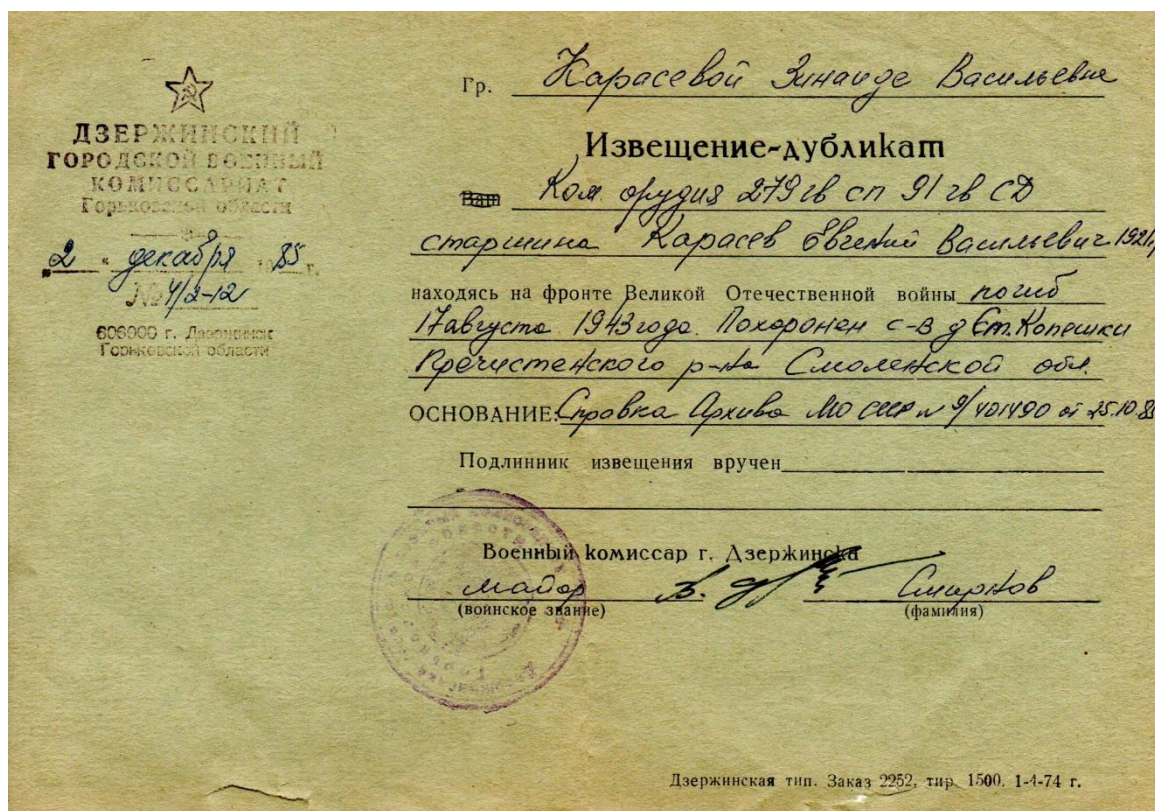 ДЗЕРЖИНСКИЙ
ГОРОДСКОЙ ВОЕННЫЙ
КОМИССАРИАТ
Горьковской области
"2" декабря 1985 г.
№ 4/2-12
606000 г. Дзержинск
Горьковской области
Гр. Карасевой Зинаиде Васильевне
Извещение-дубликат
Ваш Ком. орудия 279 гв сп 91 гв СД
старшина Карасев Евгений Васильевич 1921г
находясь на фронте Великой Отечественной войны погиб
17 августа 1943 года. Похоронен с-в д Ст. Копешки
Пречистенского р-на Смоленской обл.
ОСНОВАНИЕ: Справка Архива МО СССР № 9/401490 от 25.10.85
Подлинник извещения вручен
Военный комиссар г. Дзержинска
майор Смирнов
(воинское звание) (фамилия)
Дзержинская тип. Заказ 2252, тир. 1500. 1-4-74 г.